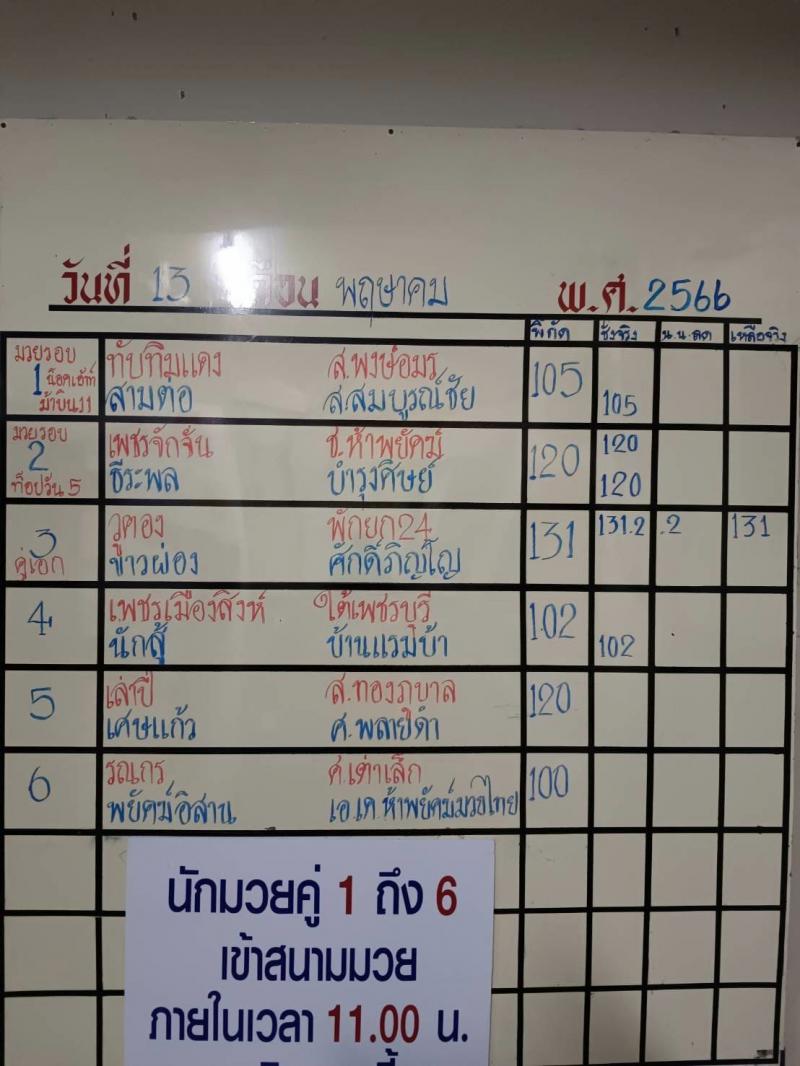 วันที่ 13 เดือน พฤษาคม พ.ศ. 2566
พิกัด ชั่งจริง น.น.ลด เหลือจริง
มวยรอบ ทับทิมแดง ส.พงษ์อมร 105
1 น็อคเอ้าท์ สามต่อ ส.สมบูรณ์ชัย 105
ม้าบิน11
มวยรอบ เพชรจักจั่น ช.ห้าพยัคฆ์ 120 120
2 ธีระพล บำรุงศิษย์ 120
ท็อปวัน 5
3 วูคอง พักยก24 131 131.2 .2 131
คู่เอก ขาวผ่อง ศักดิ์ภิญโญ
4 เพชรเมืองสิงห์ ใต้เพชรบุรี 102
นักสู้ บ้านแรมบ้า 102
5 เล่าปี่ ส.ทองภูบาล 120
เศษแก้ว ศ.พลายดำ
6 รณกร ศ.เต่าเล็ก 100
พยัคฆ์อิสาน เอ.เค.ห้าพยัคฆ์มวยไทย
นักมวยคู่ 1 ถึง 6
เข้าสนามมวย
ภายในเวลา 11.00 น.